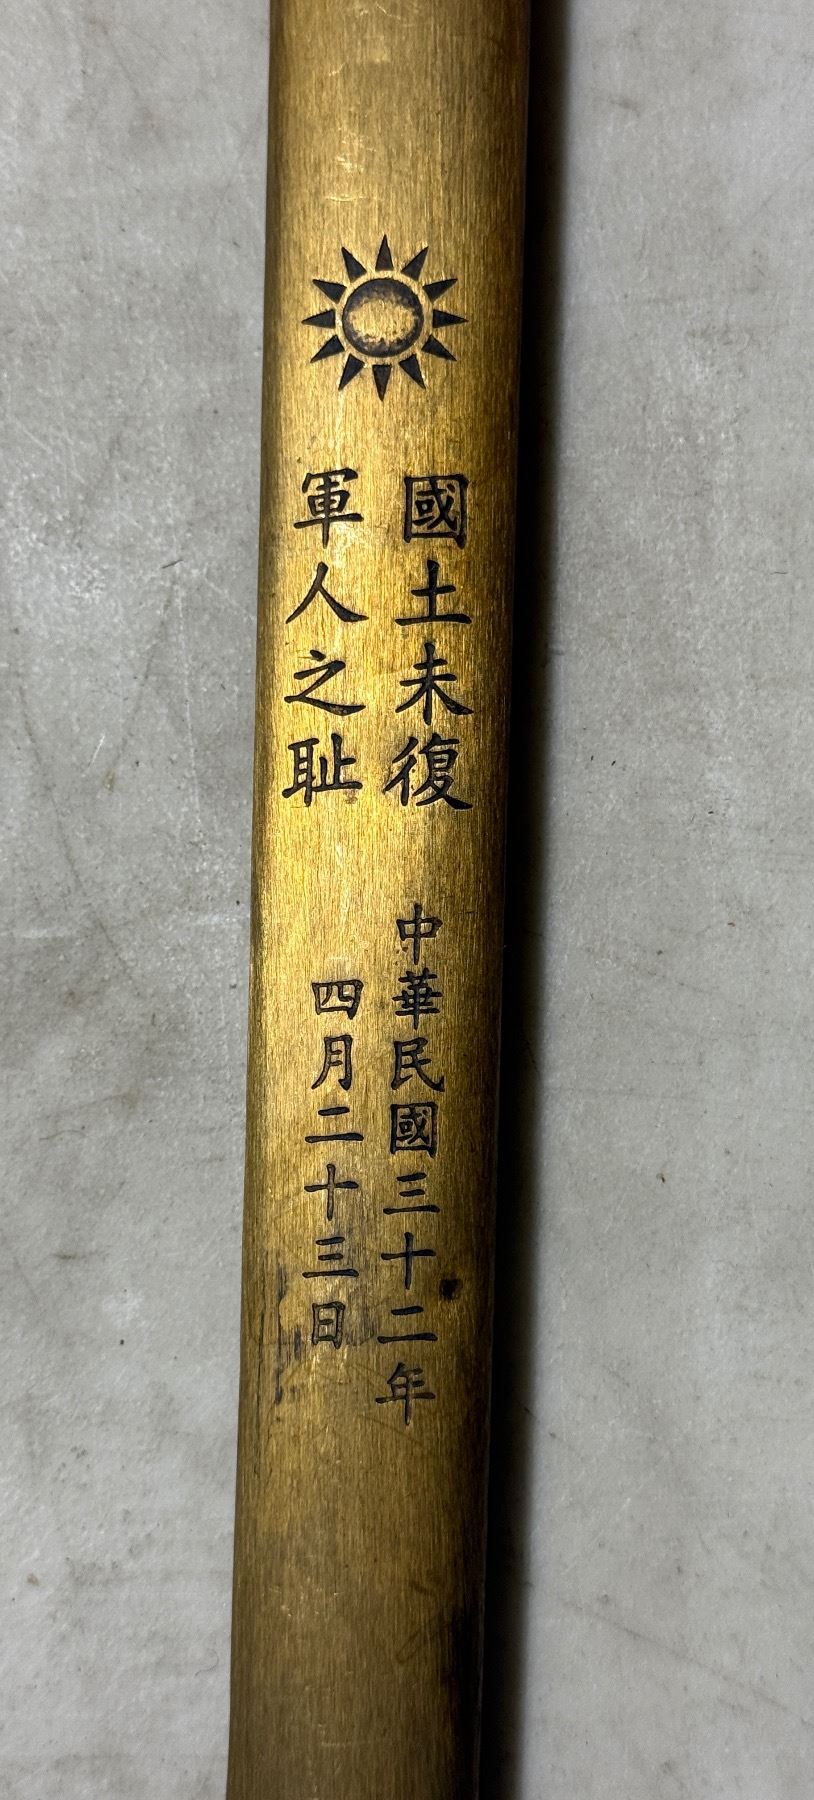 國土未復
軍人之耻
中華民國三十二年
四月二十三日